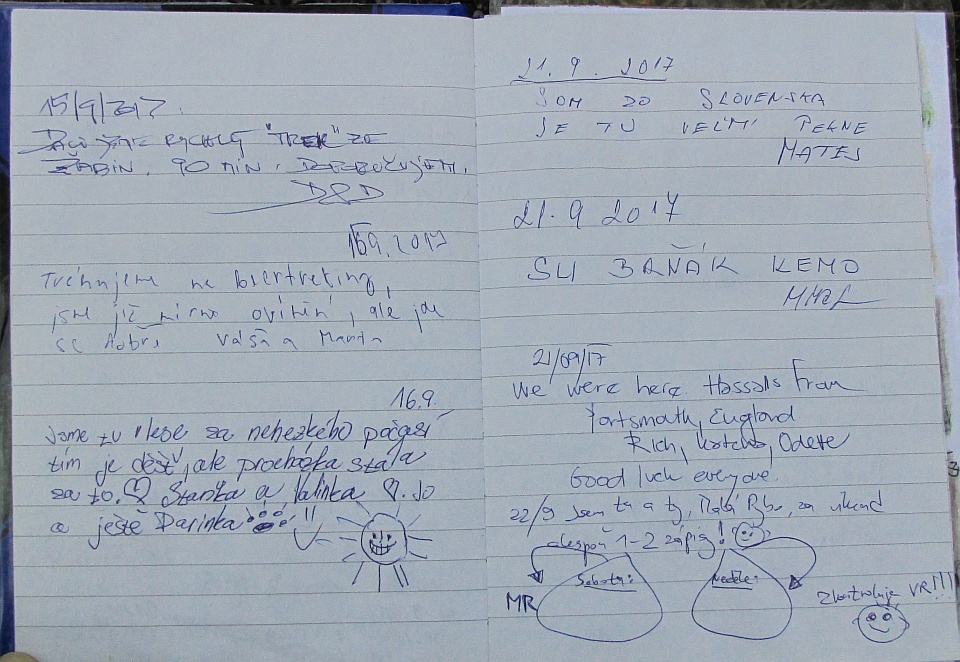 15/9/2017.
RYCHLÝ "TREK" ZE
ŽABIN, 90 MIN.
D&D
15.9.2017
Trénujeme na
jsme již mírně, ale jde
se Váša a
16.9.
Jsme tu v lese za nehezkého počasí
tím je déšť, ale procházka stála
za to. Stanka a Valinka. Jo
a ještě Darinka
21.9.2017
SOM ZO SLOVENSKA
JE TU VEĽMI PEKNE
MATEJ
21.9 2017
SU BAŇÁK KEMO
21/09/17
We were here. Hassals From
Portsmouth, England
Rich, Odete
Good luck everyone.
22/9 Jsem tu a ty, Malá Rybo, za víkend
alespoň 1-2 zápisy!
Sobota:
Neděle:
MR
Zkontroluje VR!!!